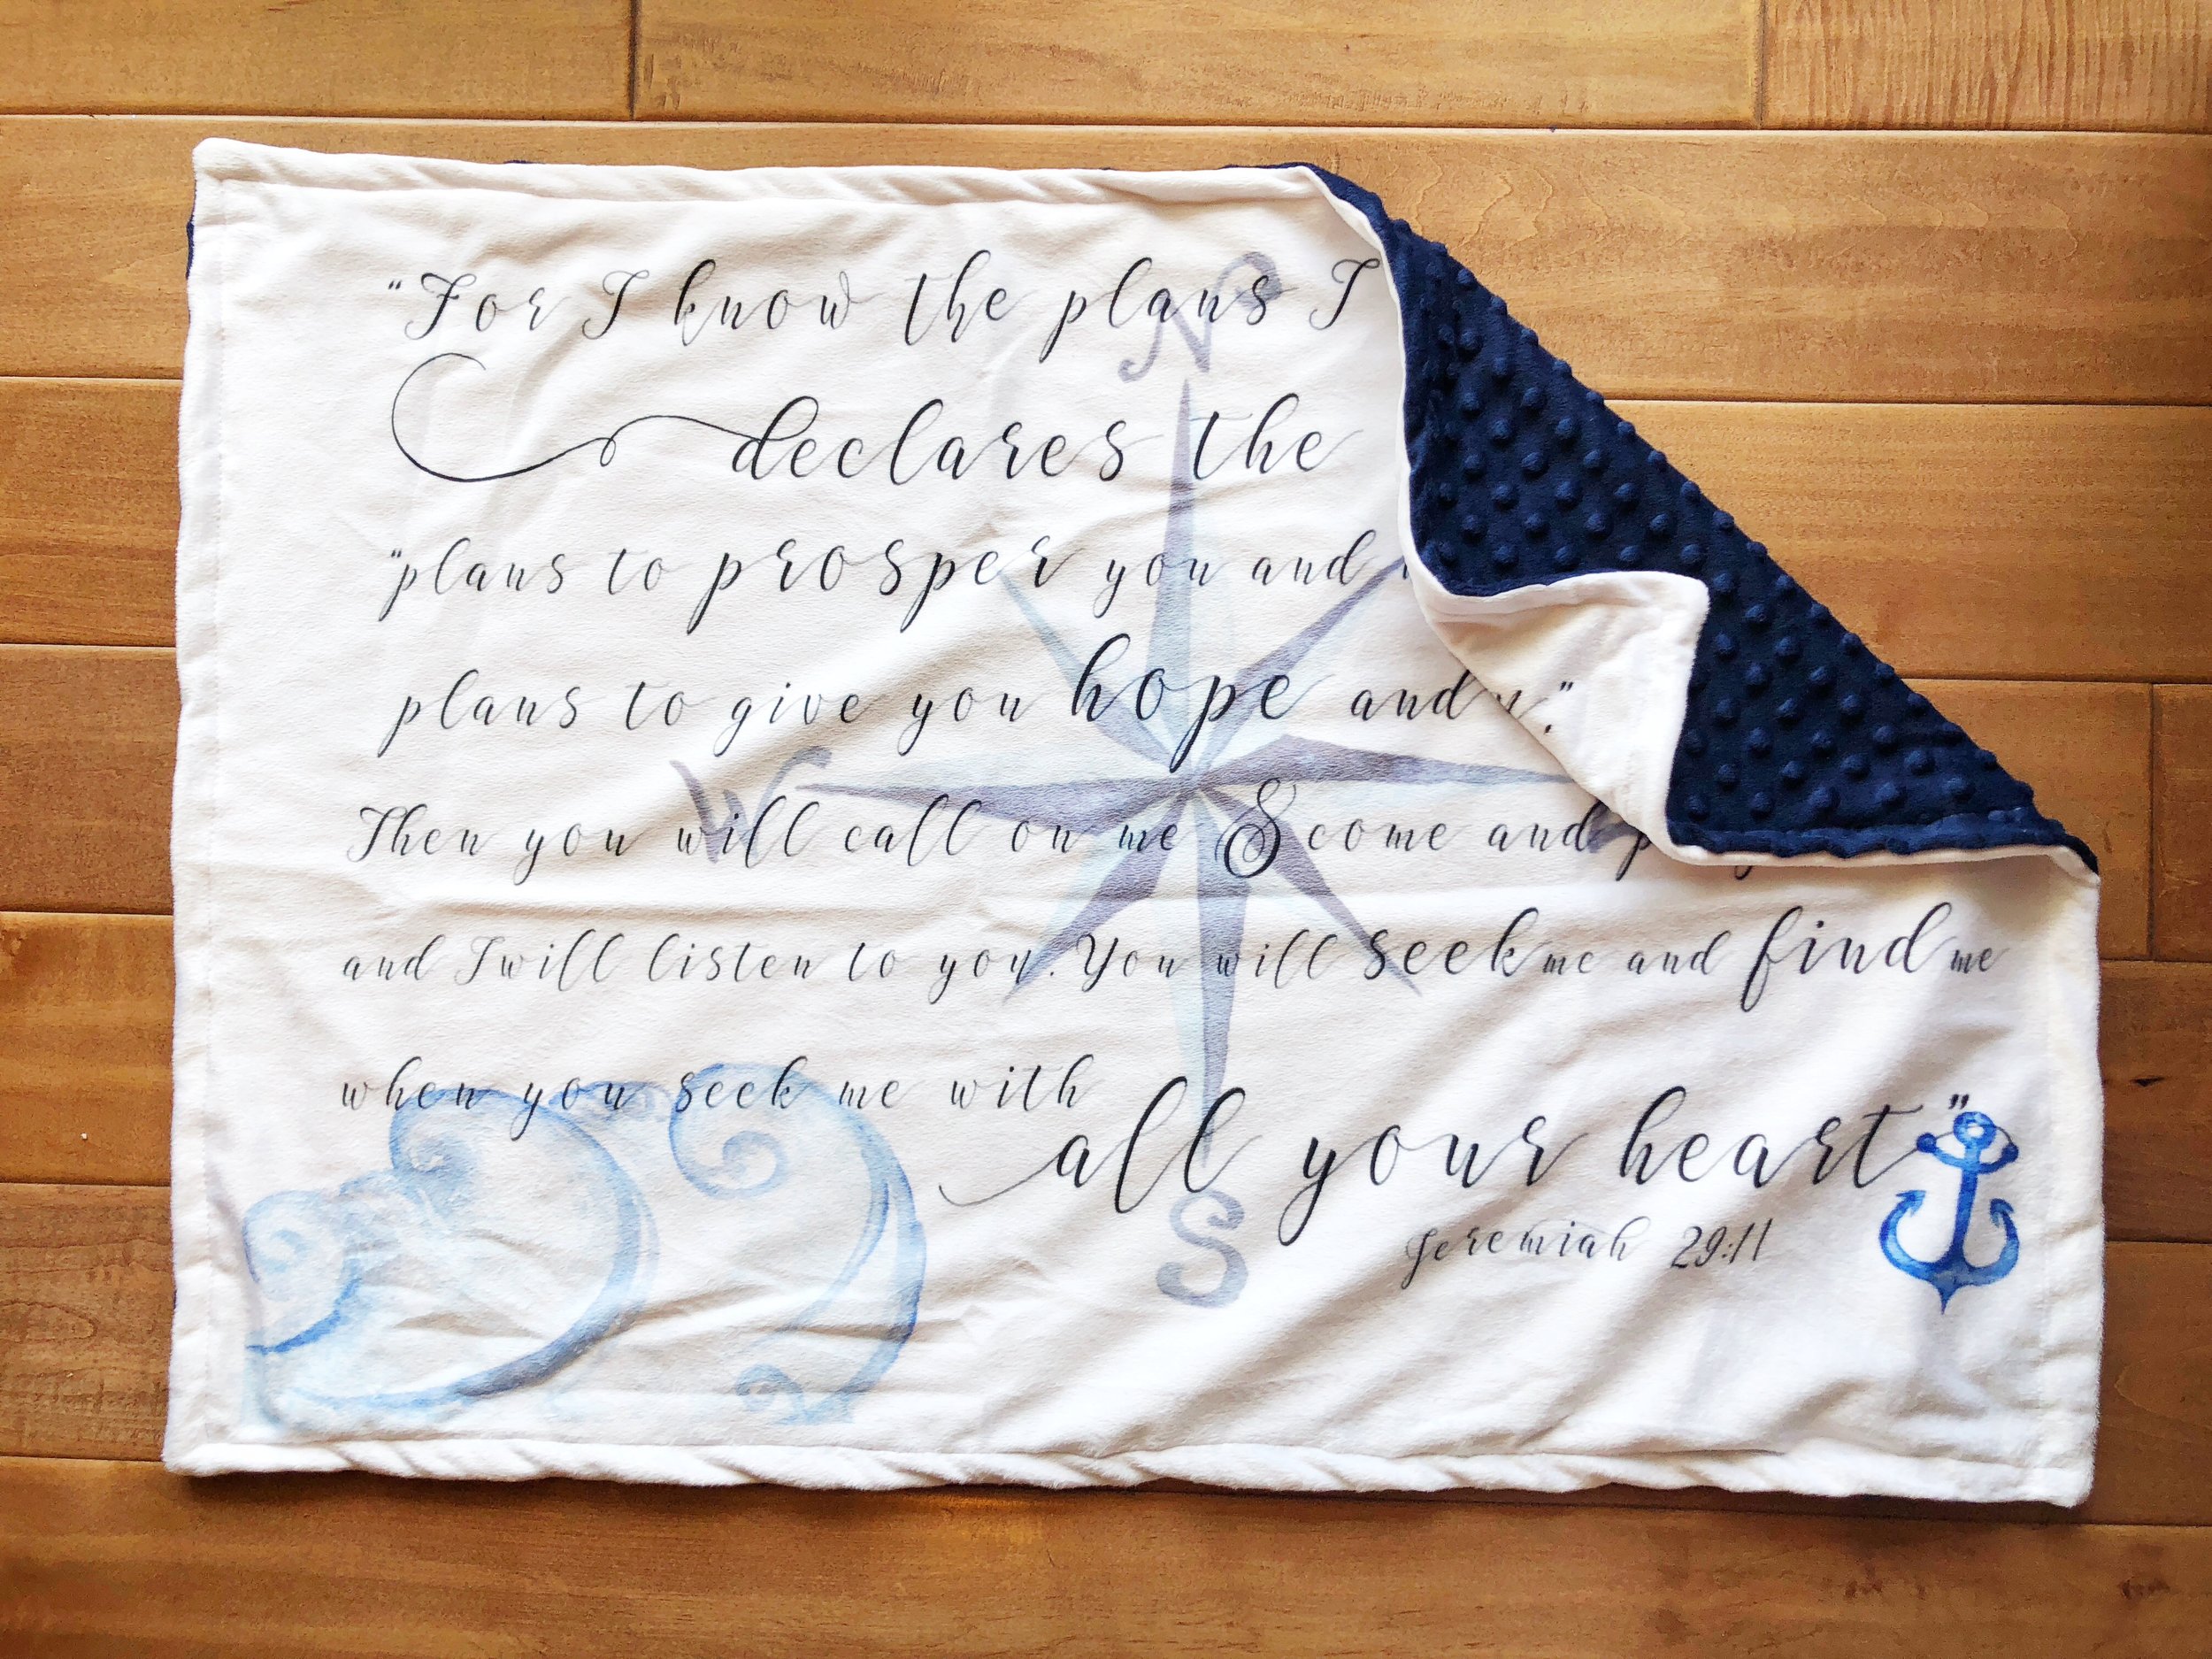 "For I know the plans I
N
declares the
"plans to prosper you and
plans to give you hope and
."
W
Then you will call on me & come and
and I will listen to you. You will seek me and find me
when you seek me with
all your heart"
S
Jeremiah 29:11